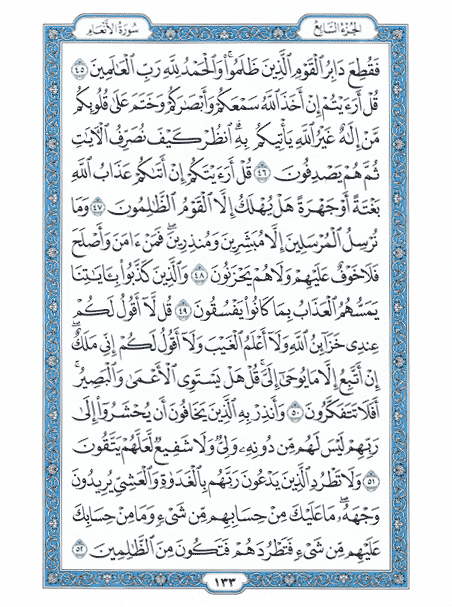 الجزء السابع
سورة الأنعام
فَقُطِعَ دَابِرُ ٱلْقَوْمِ ٱلَّذِينَ ظَلَمُوا۟ۚ وَٱلْحَمْدُ لِلَّهِ رَبِّ ٱلْعَـٰلَمِينَ ٤٥
قُلْ أَرَءَيْتُمْ إِنْ أَخَذَ ٱللَّهُ سَمْعَكُمْ وَأَبْصَـٰرَكُمْ وَخَتَمَ عَلَىٰ قُلُوبِكُم
مَّنْ إِلَـٰهٌ غَيْرُ ٱللَّهِ يَأْتِيكُم بِهِۗ ٱنظُرْ كَيْفَ نُصَرِّفُ ٱلْـَٔايَـٰتِ
ثُمَّ هُمْ يَصْدِفُونَ ٤٦ قُلْ أَرَءَيْتَكُمْ إِنْ أَتَىٰكُمْ عَذَابُ ٱللَّهِ
بَغْتَةً أَوْ جَهْرَةً هَلْ يُهْلَكُ إِلَّا ٱلْقَوْمُ ٱلظَّـٰلِمُونَ ٤٧ وَمَا
نُرْسِلُ ٱلْمُرْسَلِينَ إِلَّا مُبَشِّرِينَ وَمُنذِرِينَۖ فَمَنْ ءَامَنَ وَأَصْلَحَ
فَلَا خَوْفٌ عَلَيْهِمْ وَلَا هُمْ يَحْزَنُونَ ٤٨ وَٱلَّذِينَ كَذَّبُوا۟ بِـَٔايَـٰتِنَا
يَمَسُّهُمُ ٱلْعَذَابُ بِمَا كَانُوا۟ يَفْسُقُونَ ٤٩ قُل لَّآ أَقُولُ لَكُمْ
عِندِى خَزَآئِنُ ٱللَّهِ وَلَآ أَعْلَمُ ٱلْغَيْبَ وَلَآ أَقُولُ لَكُمْ إِنِّى مَلَكٌۖ
إِنْ أَتَّبِعُ إِلَّا مَا يُوحَىٰٓ إِلَىَّۚ قُلْ هَلْ يَسْتَوِى ٱلْأَعْمَىٰ وَٱلْبَصِيرُۚ
أَفَلَا تَتَفَكَّرُونَ ٥٠ وَأَنذِرْ بِهِ ٱلَّذِينَ يَخَافُونَ أَن يُحْشَرُوٓا۟ إِلَىٰ
رَبِّهِمْۙ لَيْسَ لَهُم مِّن دُونِهِۦ وَلِىٌّ وَلَا شَفِيعٌ لَّعَلَّهُمْ يَتَّقُونَ
٥١ وَلَا تَطْرُدِ ٱلَّذِينَ يَدْعُونَ رَبَّهُم بِٱلْغَدَوٰةِ وَٱلْعَشِىِّ يُرِيدُونَ
وَجْهَهُۥۖ مَا عَلَيْكَ مِنْ حِسَابِهِم مِّن شَىْءٍ وَمَا مِنْ حِسَابِكَ
عَلَيْهِم مِّن شَىْءٍ فَتَطْرُدَهُمْ فَتَكُونَ مِنَ ٱلظَّـٰلِمِينَ ٥٢
١٣٣